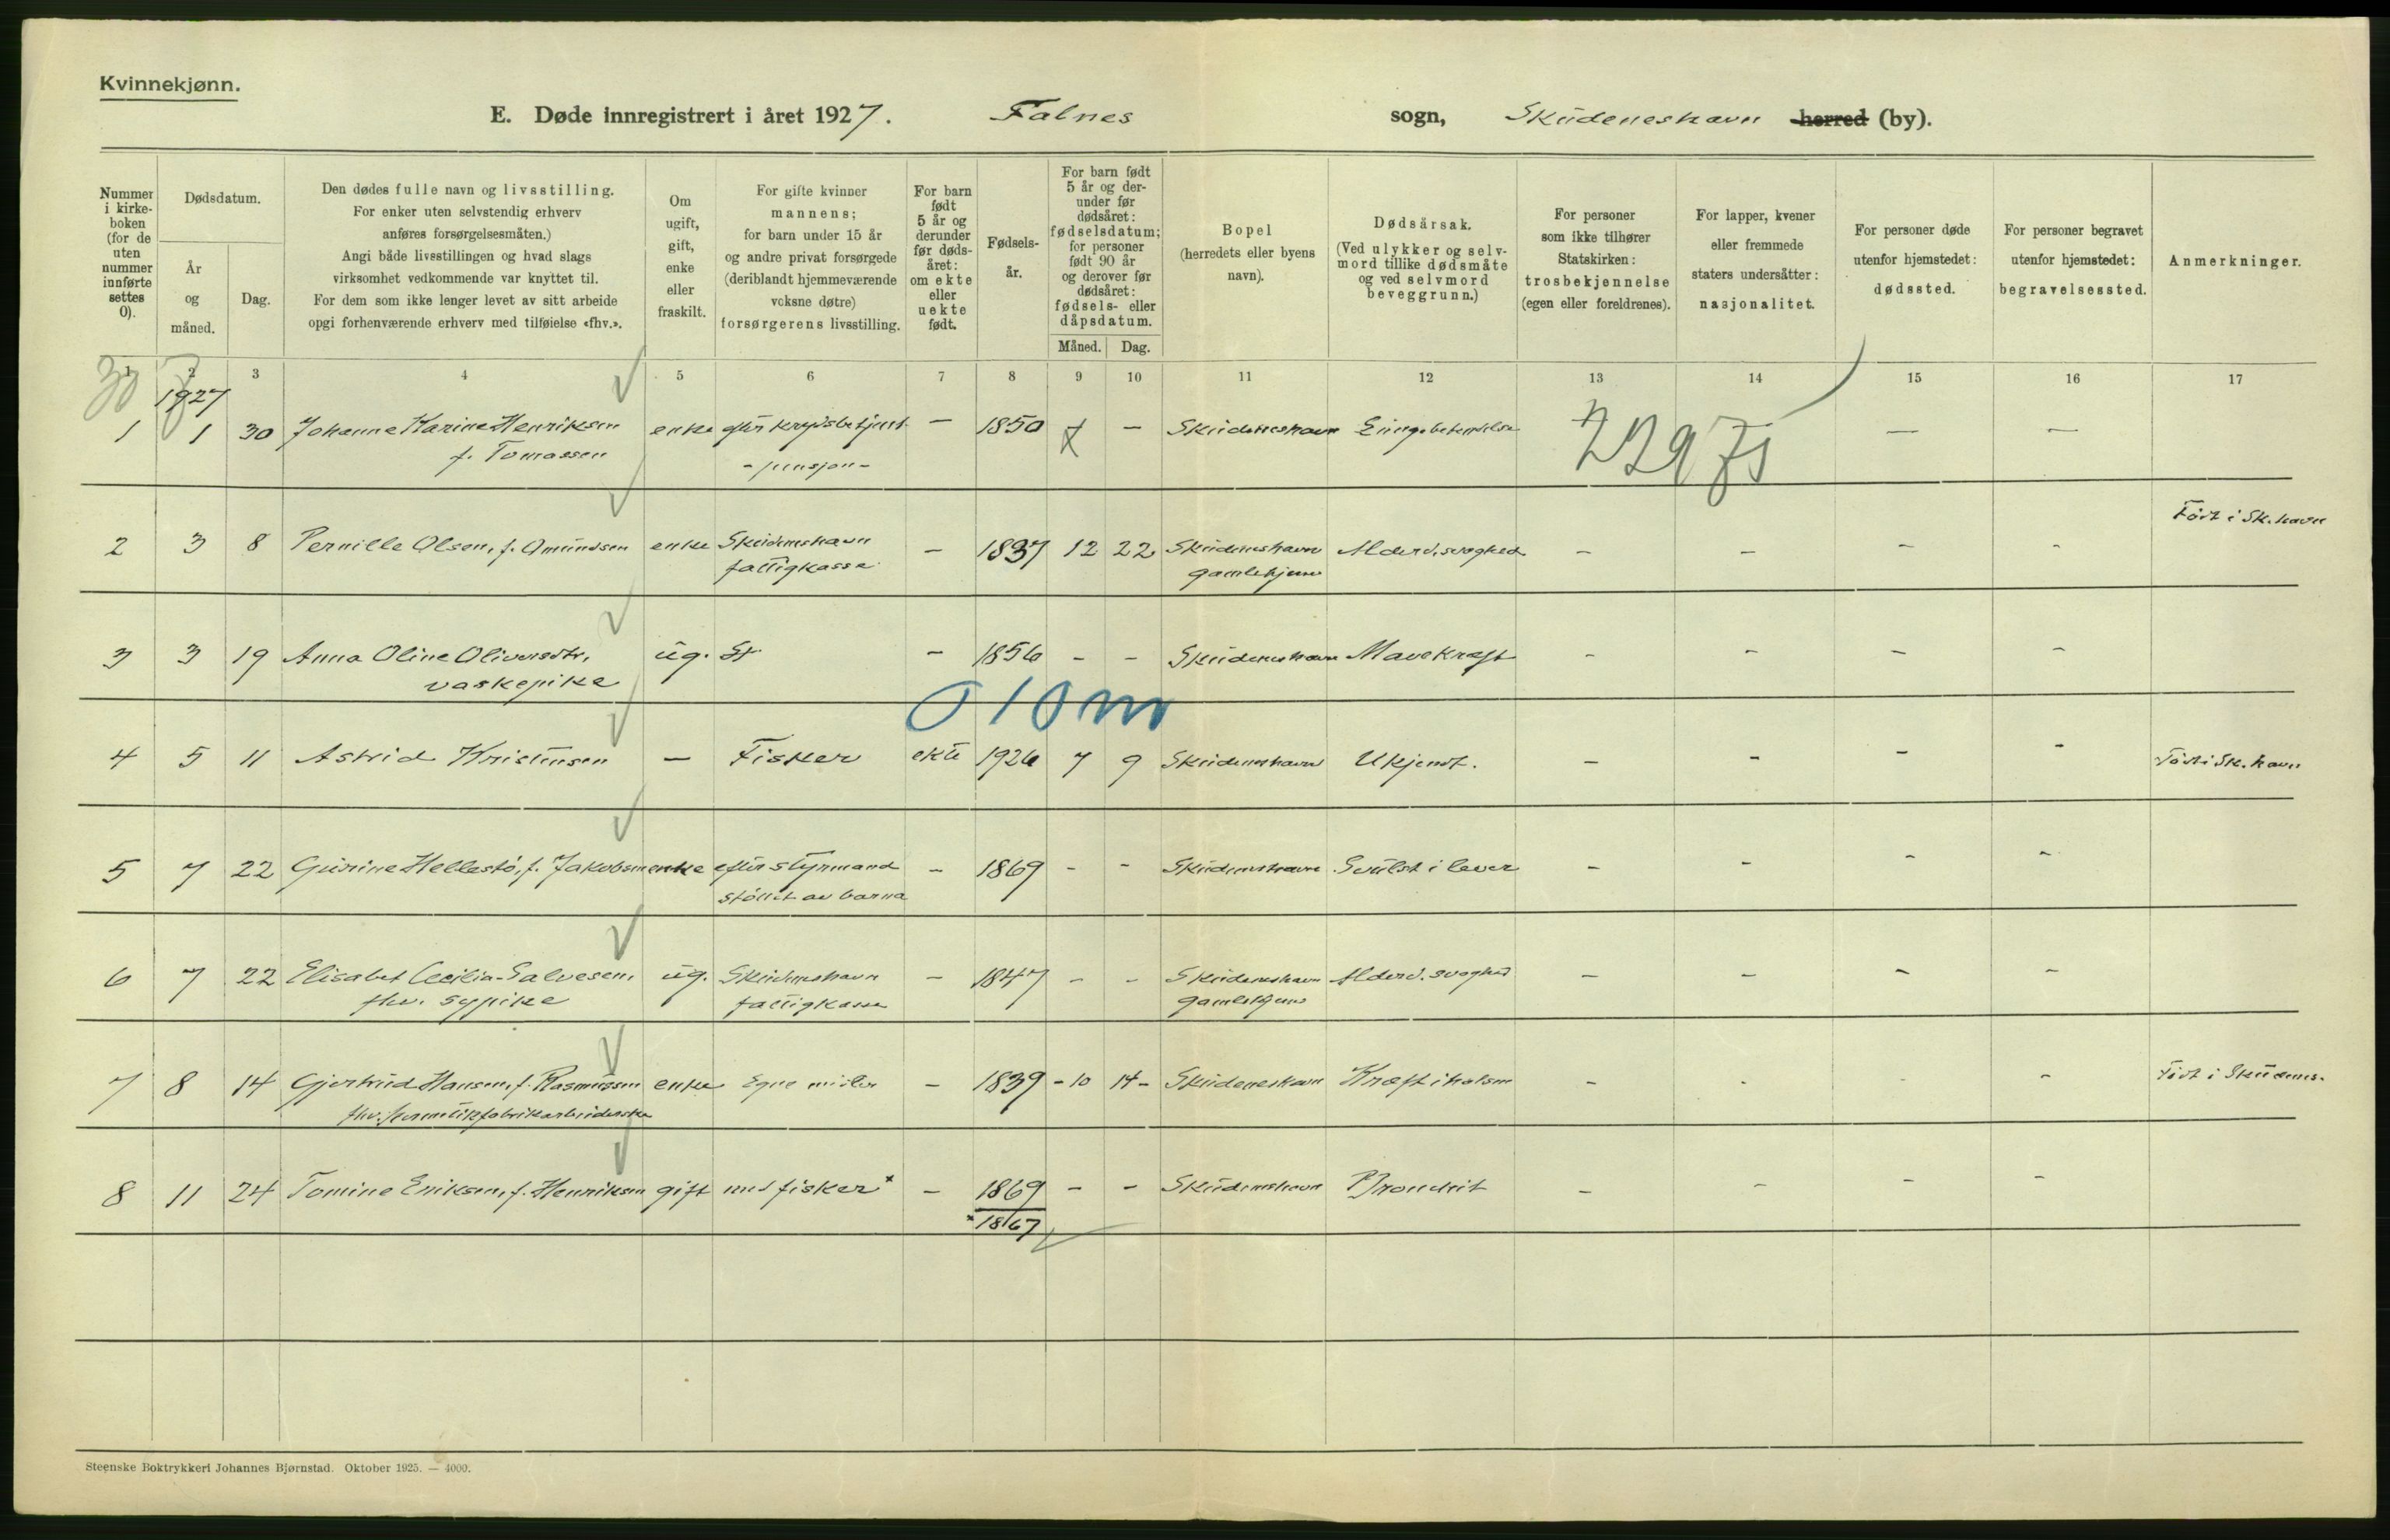 Kvinnekjønn.
E. Døde innregistrert i året 1927. Falnes sogn, Skudeneshavn herred (by).
Nummer i kirke-boken (for de uten nummer innførte settes 0).
Dødsdatum.
År og måned.
Dag.
Den dødes fulle navn og livsstilling.
For enker uten selvstendig erhverv
anføres forsørgelsesmåten.)
Angi både livsstillingen og hvad slags
virksomhet vedkommende var knyttet til.
For dem som ikke lenger levet av sitt arbeide
opgi forhenværende erhverv med tilføielse «fhv.».
Om ugift, gift, enke eller fraskilt.
For gifte kvinner
mannens;
for barn under 15 år
og andre privat forsørgede
(deriblandt hjemmeværende
voksne døtre)
forsørgerens livsstilling.
For barn født 5 år og derunder før døds-året: om ekte eller uekte født.
Fødsels-år.
For barn født
5 år og der-
under før
dødsåret:
fødselsdatum;
for personer
født 90 år
og derover før
dødsåret:
fødsels- eller
dåpsdatum.
Måned. Dag.
Bopel
(herredets eller byens
navn).
Dødsårsak.
(Ved ulykker og selv-
mord tillike dødsmåte
og ved selvmord
beveggrunn.)
For personer
som ikke tilhører
Statskirken:
trosbekjennelse
(egen eller foreldrenes).
For lapper, kvener
eller fremmede
staters undersåtter:
nasjonalitet.
For personer døde
utenfor hjemstedet:
dødssted.
For personer begravet
utenfor hjemstedet:
begravelsessted.
Anmerkninger.
1 2 3 4 5 6 7 8 9 10 11 12 13 14 15 16 17
30 1927
1 1 30 Johanne Karine Henriksen enke efter krydsbetjent — 1850 — Skudeneshavn Lungebetendelse — —
f. Tomassen - pensjon -
22975
Født i Sk.havn
2 3 8 Pernille Olsen, f. Amundsen enke Skudeneshavn — 1837 12 22 Skudeneshavn Alderd.svaghed - - - -
fattigkasse gamlehjem
3 3 19 Anna Oline Oliversdtr. ug. - 1856 - - Skudeneshavn Mavekræft - - - -
vaskepike
010m
4 5 11 Astrid Kristensen — Fisker ekte 1926 7 9 Skudeneshavn Ukjendt. - - - - Født i Sk.havn
5 7 22 Gurine Hellestö, f. Jakobsen enke efter styrmand - 1869 - - Skudeneshavn Svulst i lever - - - -
støttet av barna
6 7 22 Elisabet Cecilia Salvesen, ug. Skudeneshavn - 1847 - - Skudeneshavn Alderd. svaghed - - - -
fhv. sypike fattigkasse gamlehjem
7 8 14 Gjertrud Hansen, f. Rasmussen enke Egne midler - 1839 - 10 14 - Skudeneshavn Kræft i halsen - - - - Født i Skudenes.
fhv. hermetikfabrikarbeiderske
8 11 24 Tomine Eriksen, f. Henriksen gift med fisker x - 1869 - - Skudeneshavn Bronchit - - - -
x 1867
Steenske Boktrykkeri Johannes Bjørnstad. Oktober 1925. — 4000.